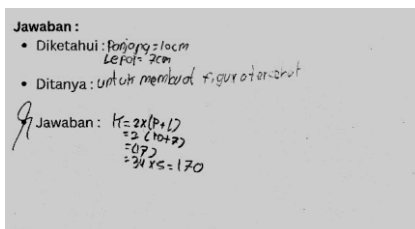 Jawaban :
• Diketahui : Panjang = 10cm
Lebar = 7cm
• Ditanya : untuk membuat figura tersebut
Jawaban : K = 2x(P+L)
= 2 (10+7)
= (17)
= 34 x 5 = 170